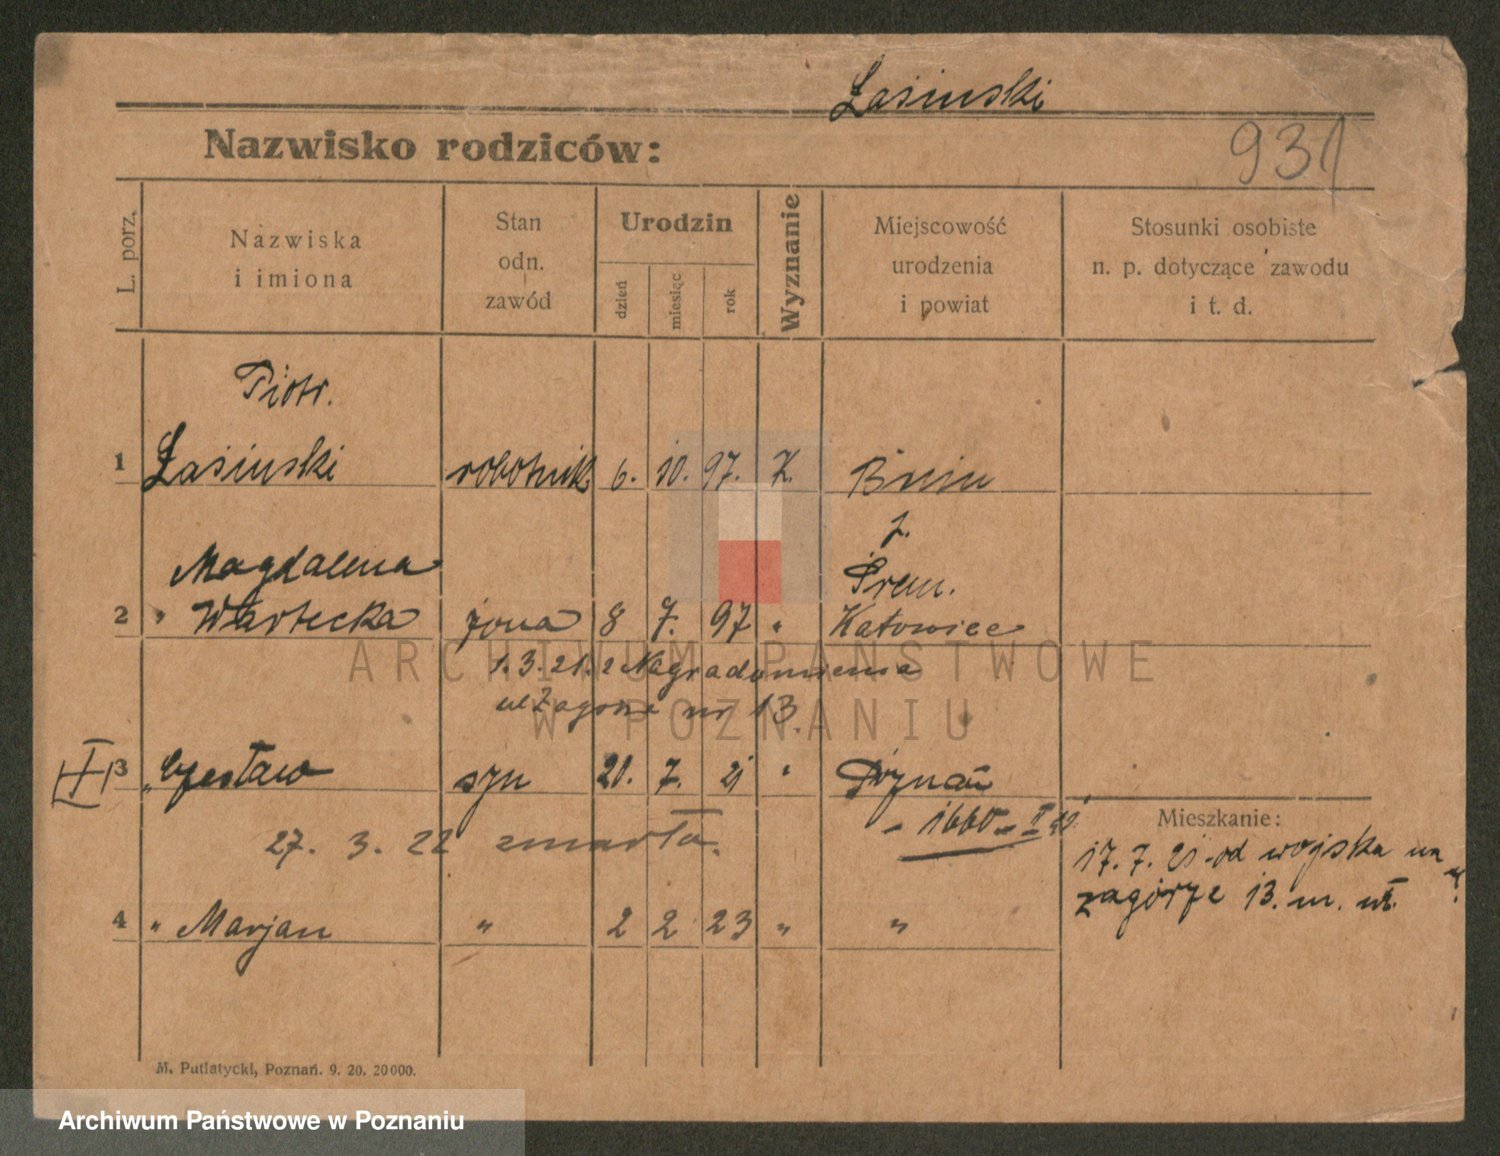 Łasiński
Nazwisko rodziców:
931
L. porz.
Nazwiska
i imiona
Stan
odn.
zawód
Urodzin
dzień
miesiąc
rok
Wyznanie
Miejscowość
urodzenia
i powiat
Stosunki osobiste
n. p. dotyczące zawodu
i t. d.
Piotr.
1 Łasiński robotnik 6. 10. 97. K. Bnin
p.
Śrem.
Magdalena
2 " Wartecka żona 8 7. 97 " Katowice
1. 3. 21. z Nagradowienia
ul Zagórze nr 13.
3 " Czesław syn 20. 7. 21 " Poznań
27. 3. 22 zmarła.
- 1660 - II
Mieszkanie:
17. 7. 21 - od wojska na
zagórze 13. m. wł.
4 " Marjan " 2 2 23 " "
M. Putiatycki, Poznań. 9. 20. 20000.
ARCHIWUM PAŃSTWOWE
W POZNANIU
Archiwum Państwowe w Poznaniu